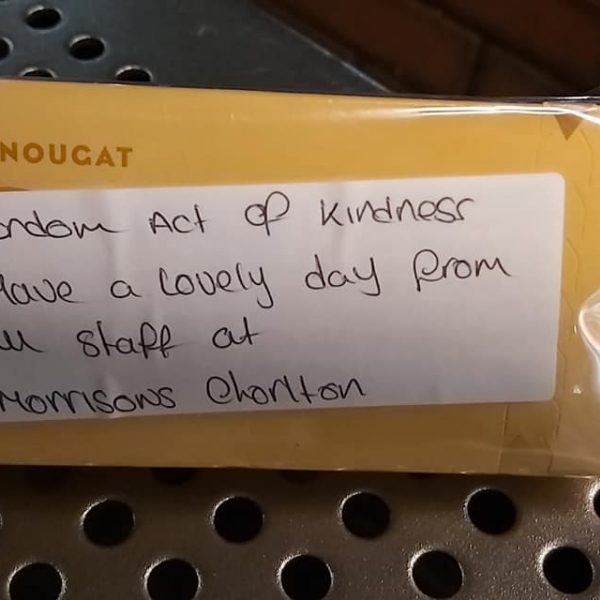 NOUGAT
ndom Act of Kindness
Have a lovely day from
all staff at
Morrisons Chorlton